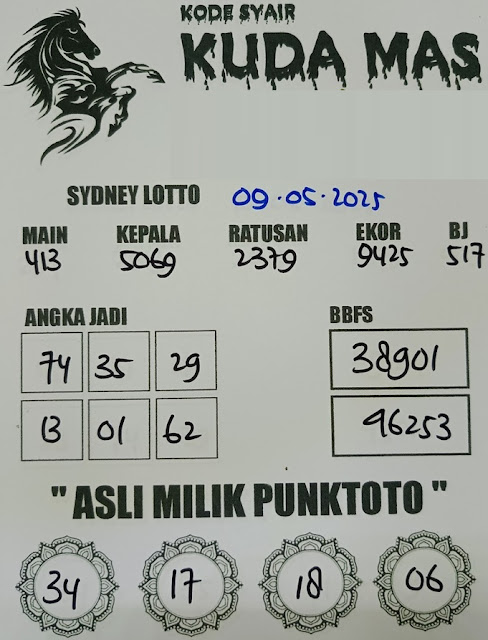 KODE SYAIR
KUDA MAS
SYDNEY LOTTO 09.05.2025
MAIN KEPALA RATUSAN EKOR BJ
413 5069 2379 9425 517
ANGKA JADI BBFS
74 35 29 38901
13 01 62 96253
" ASLI MILIK PUNKTOTO "
34 17 18 06